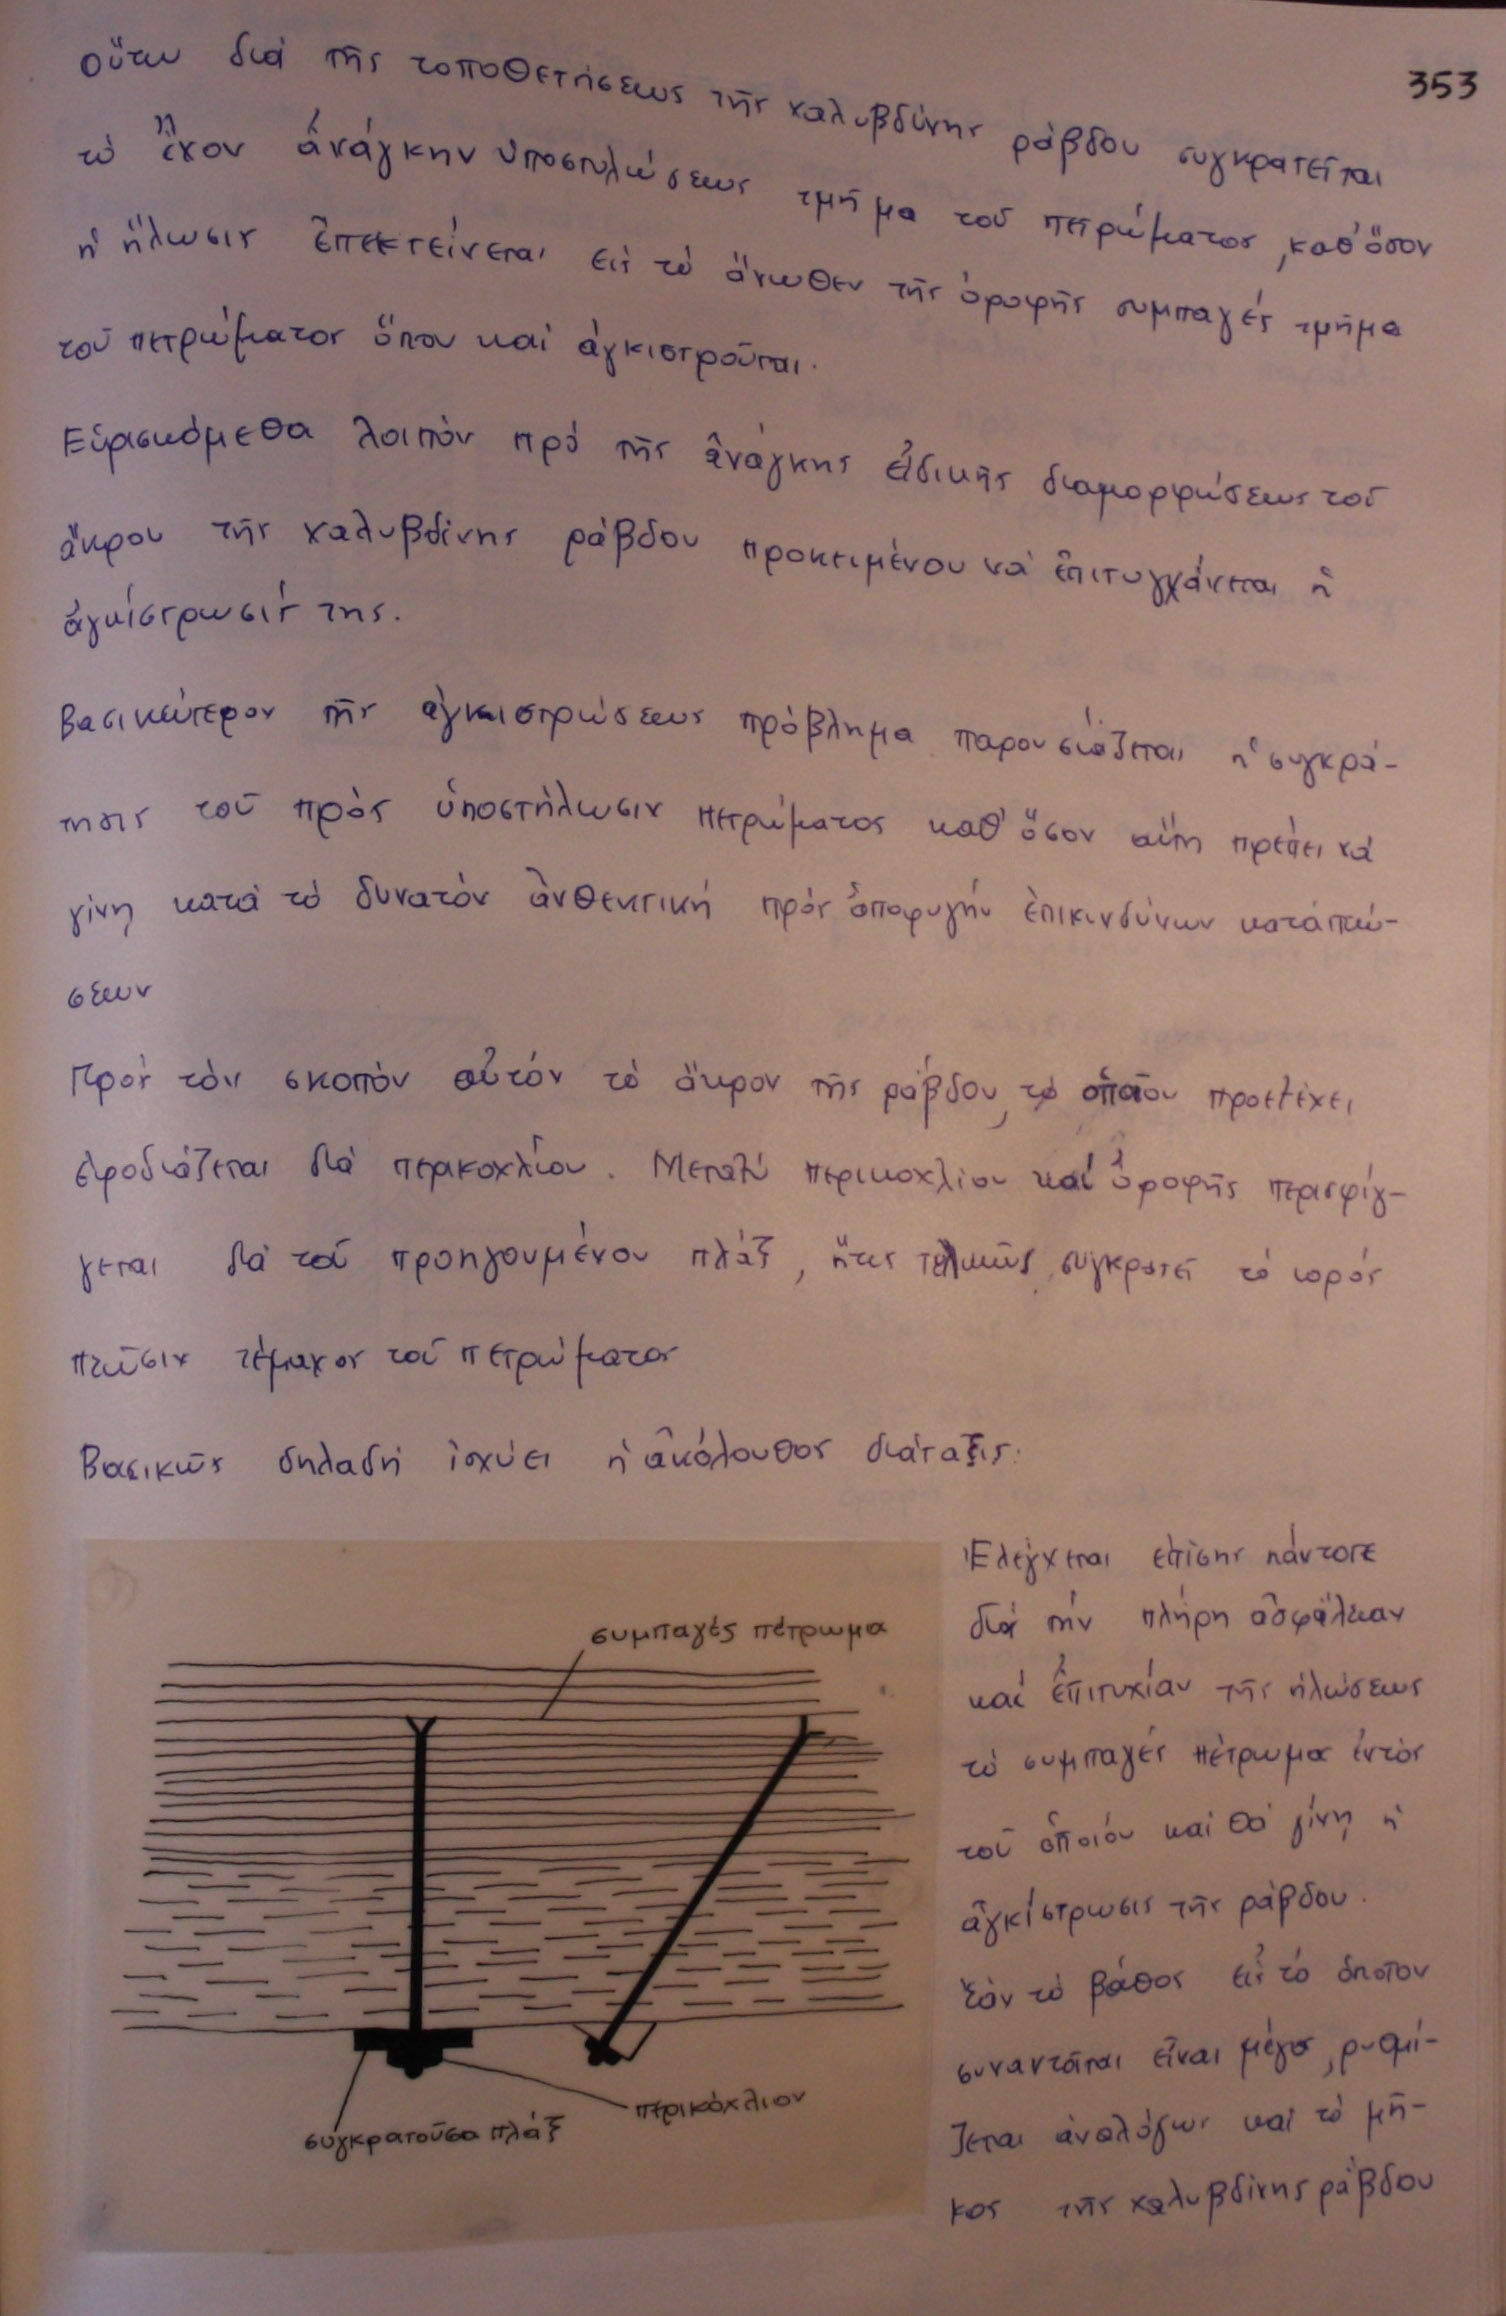 353
οὕτω διά τῆς τοποθετήσεως τῆς χαλυβδίνης ράβδου συγκρατεῖται
τό ἔχον ἀνάγκην ὑποστυλώσεως τμῆμα τοῦ πετρώματος, καθ' ὅσον
ἡ ἥλωσις ἐπεκτείνεται εἰς τό ἄνωθεν τῆς ὀροφῆς συμπαγές τμῆμα
τοῦ πετρώματος ὅπου καί ἀγκιστροῦται.
Εὑρισκόμεθα λοιπόν πρό τῆς ἀνάγκης εἰδικῆς διαμορφώσεως τοῦ
ἄκρου τῆς χαλυβδίνης ράβδου προκειμένου νά ἐπιτυγχάνεται ἡ
ἀγκίστρωσίς της.
Βασικώτερον τῆς ἀγκιστρώσεως πρόβλημα παρουσιάζεται ἡ συγκρά-
τησις τοῦ πρός ὑποστήλωσιν πετρώματος καθ' ὅσον αὕτη πρέπει νά
γίνη κατά τό δυνατόν ἀνθεκτική πρός ἀποφυγήν ἐπικινδύνων καταπτώ-
σεων
Πρός τόν σκοπόν αὐτόν τό ἄκρον τῆς ράβδου, τό ὁποῖον προεξέχει
ἐφοδιάζεται διά περικοχλίου. Μεταξύ περικοχλίου καί ὀροφῆς περισφίγ-
γεται διά τοῦ προηγουμένου πλάξ, ἥτις τελικῶς συγκρατεῖ τό πρός
πτῶσιν τέμαχος τοῦ πετρώματος
Βασικῶς δηλαδή ἰσχύει ἡ ἀκόλουθος διάταξις:
συμπαγές πέτρωμα
περικόχλιον
συγκρατοῦσα πλάξ
Ἐλέγχεται ἐπίσης πάντοτε
διά τήν πλήρη ἀσφάλειαν
καί ἐπιτυχίαν τῆς ἡλώσεως
τό συμπαγές πέτρωμα ἐντός
τοῦ ὁποίου καί θά γίνη ἡ
ἀγκίστρωσις τῆς ράβδου.
Ἐάν τό βάθος εἰς τό ὁποῖον
συναντᾶται εἶναι μέγα, ρυθμί-
ζεται ἀναλόγως καί τό μῆ-
κος τῆς χαλυβδίνης ράβδου